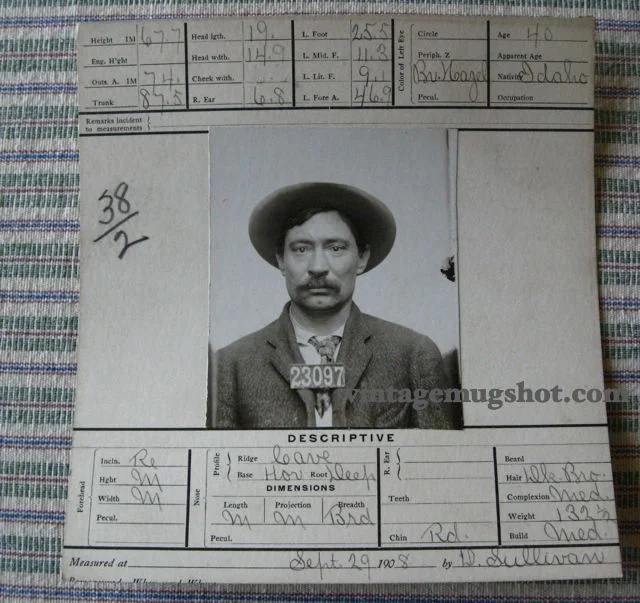 Height 1M 67.7 Head lgth. 19. L. Foot 25.5 Circle Age 40
Eng. H'ght Head width. 14.9 L. Mid. F. 11.3 Periph. Z Apparent Age
Outs. A. 1M 74. Cheek width. L. Lit. F. 9.1 Br. Hazel Nativity Idaho
Trunk 87.5 R. Ear 6.8 L. Fore A. 46.9 Pecul. Occupation
Color of Left Eye
Remarks incident
to measurements
38/2
23097
vintagemugshot.com
DESCRIPTIVE
Forehead
Incln. Re
Hght M
Width M
Pecul.
Nose
Profile
Ridge Cave
Base Hor Root Deep
DIMENSIONS
Length Projection Breadth
M M Brd
Pecul.
R. Ear
Teeth
Chin Rd.
Beard
Hair Dk Bro.
Complexion Med.
Weight 132 ½
Build Med.
Measured at Sept. 29 1908 by D. Sullivan